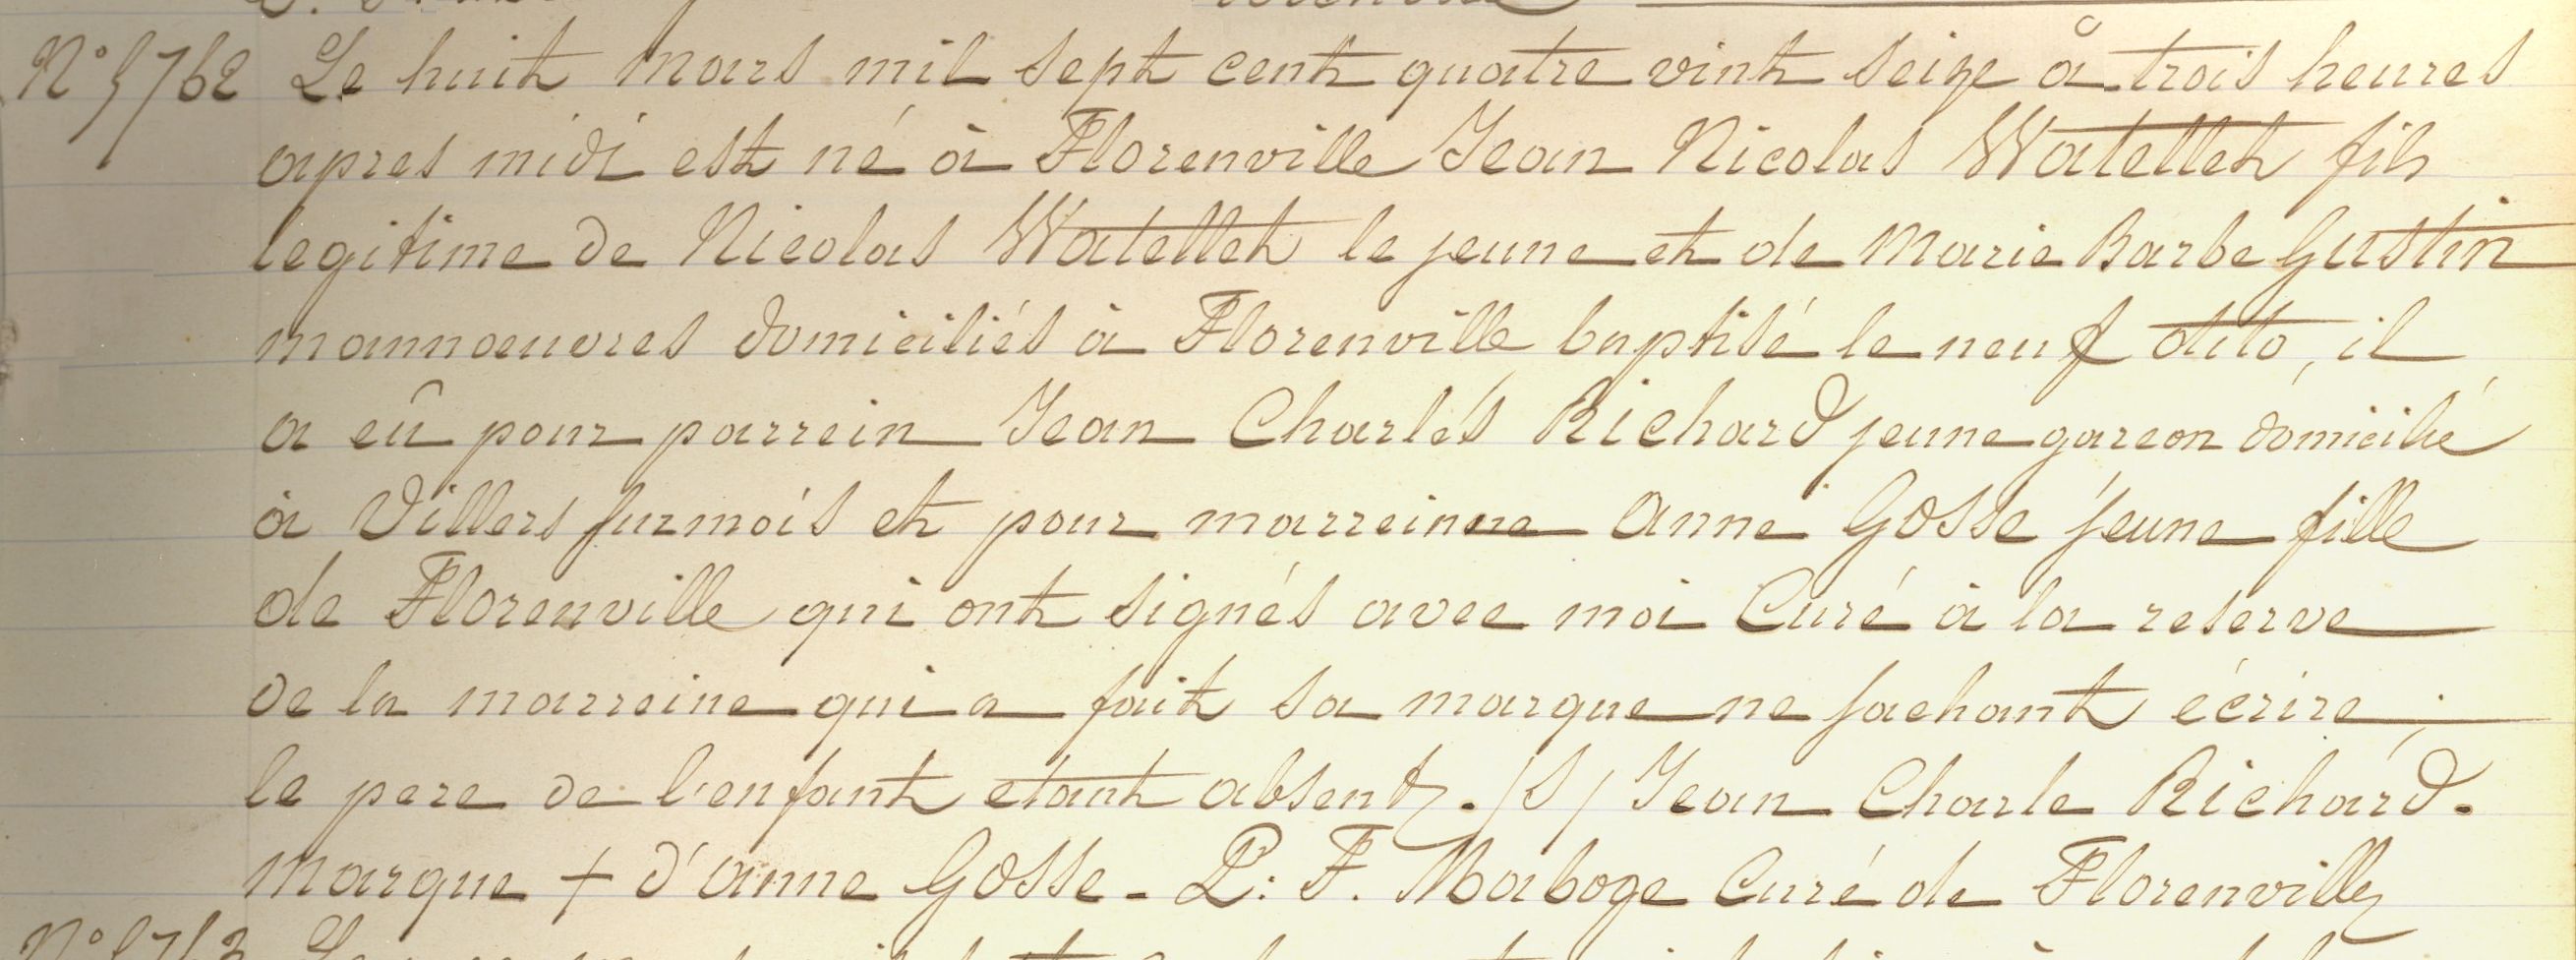 N° 5762 Le huit mars mil sept cent quatre vint seize à trois heures
apres midi est né à Florenville Jean Nicolas Watellet fils
legitime de Nicolas Watellet le jeune et de Marie Barbe Gustin
mannœuvres domiciliés à Florenville baptisé le neuf dito, il
a eû pour parrein Jean Charlés Richard jeune garcon domicilié
à Villers furmois et pour marreinne Anne Gosse jeune fille
de Florenville qui ont signés avec moi Curé à la reserve
de la marreine qui a fait sa marque ne sachant écrire,
le pere de l'enfant etant absent. /S/ Jean Charle Richard.
marque + d'anne Gosse - P: F. Maboge Curé de Florenville